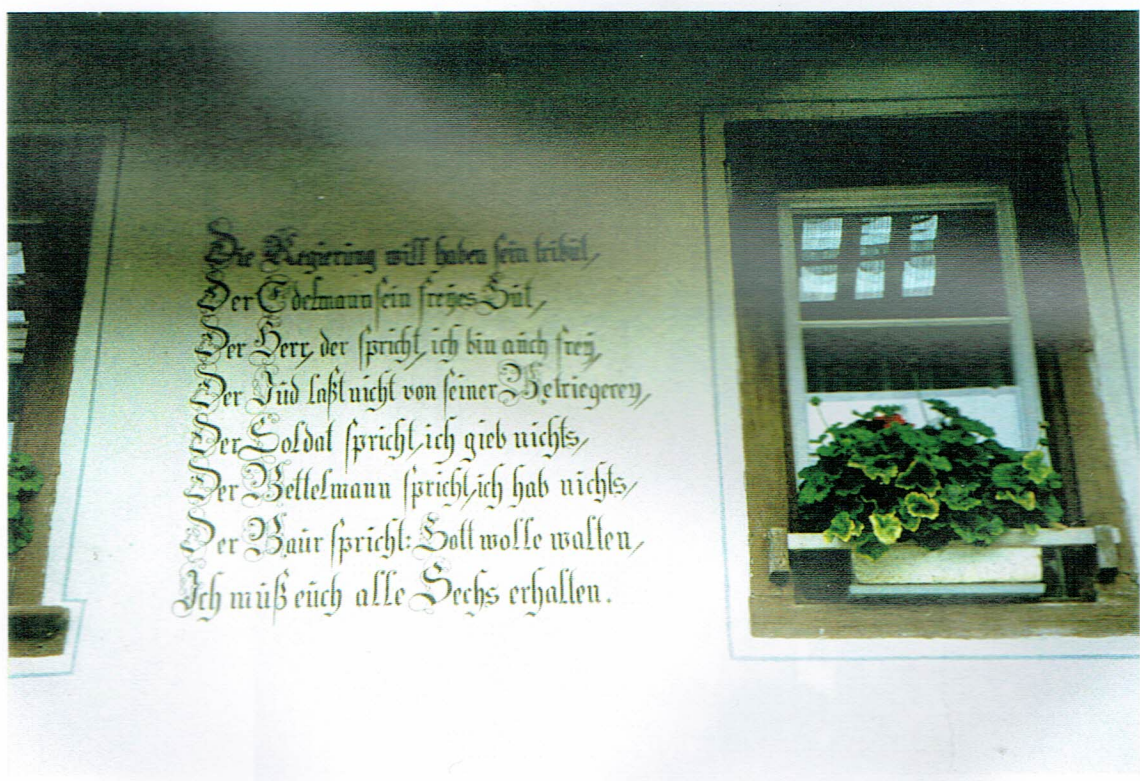 Die Regierüng will haben sein tribüt,
Der Edelmann sein freÿes Güt,
Der Herr, der spricht, ich bin aüch freÿ,
Der Jüd laßt nicht von seiner Betriegereÿ,
Der Soldat spricht, ich gieb nichts,
Der Bettelmann spricht, ich hab nichts,
Der Baür spricht: Gott wolle walten,
Ich müß eüch alle Sechs erhalten.